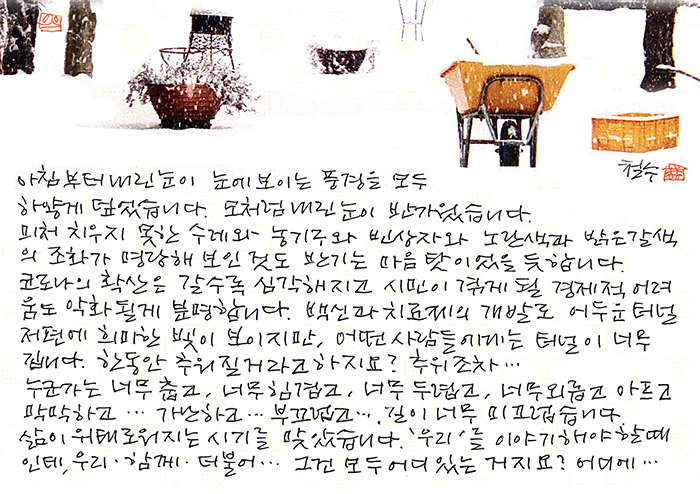 철수
아침부터 내린 눈이 눈에 보이는 풍경을 모두
하얗게 덮었습니다. 모처럼 내린 눈이 반가웠습니다.
미처 치우지 못한 수레와 농기구와 빈상자와 노란색과 밝은갈색
의 조화가 명랑해 보인 것도 반기는 마음 탓이었을 듯합니다.
코로나의 확산은 갈수록 심각해지고 시민이 겪게 될 경제적 어려
움도 악화될게 분명합니다. 백신과 치료제의 개발로 어두운 터널
저편에 희미한 빛이 보이지만, 어떤 사람들에게는 터널이 너무
깁니다. 한동안 추워질거라고 하지요? 추위조차...
누군가는 너무 춥고, 너무 힘겹고, 너무 두렵고, 너무 외롭고 아프고
막막하고... 가난하고... 부끄럽고.... 길이 너무 미끄럽습니다.
삶이 위태로워지는 시기를 맞았습니다. '우리'를 이야기해야 할 때
인데, 우리·함께·더불어... 그건 모두 어디 있는 거지요? 어디에...